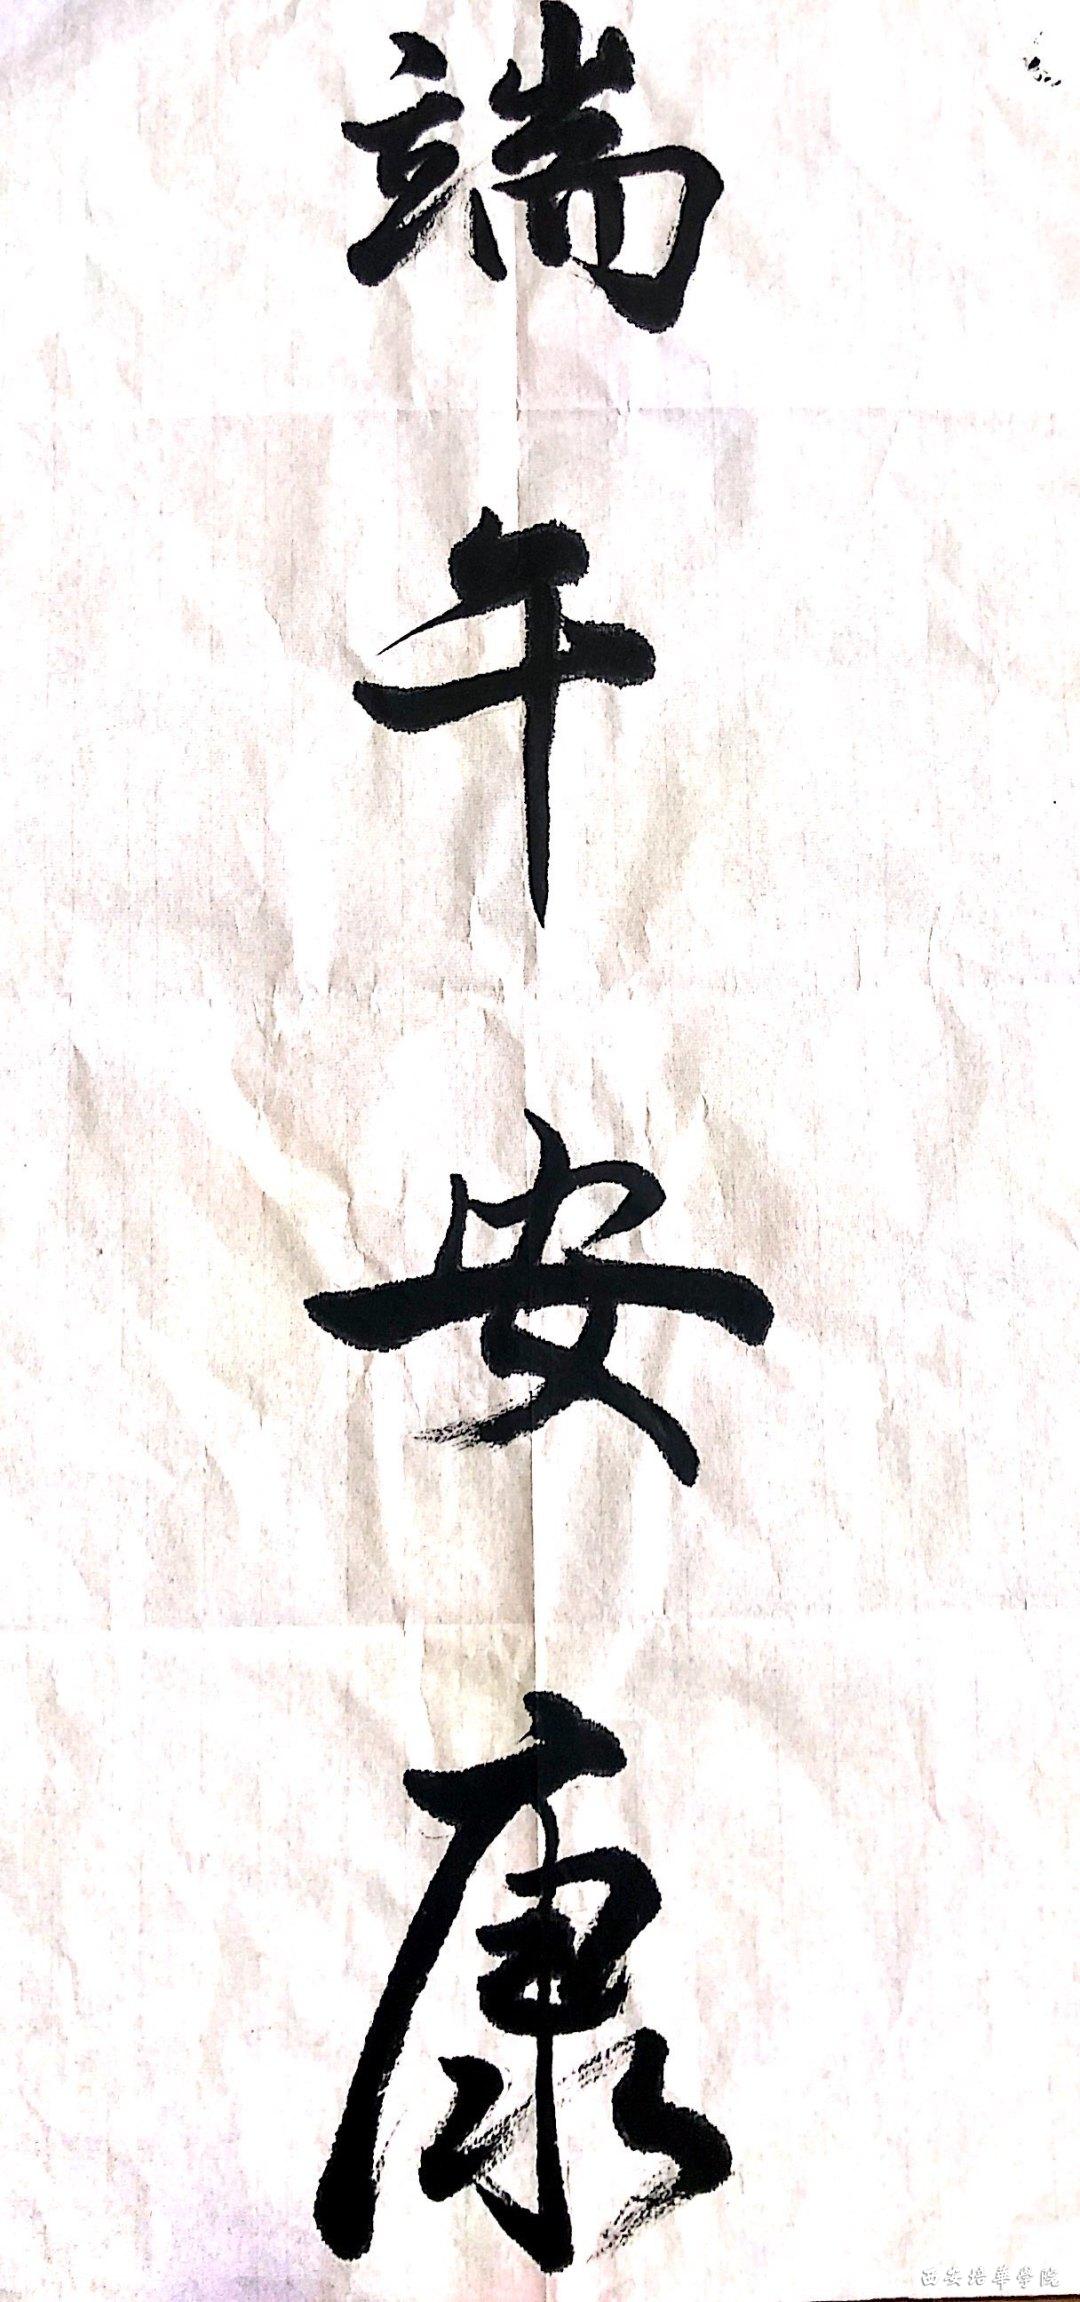 端午安康
西安培華学院